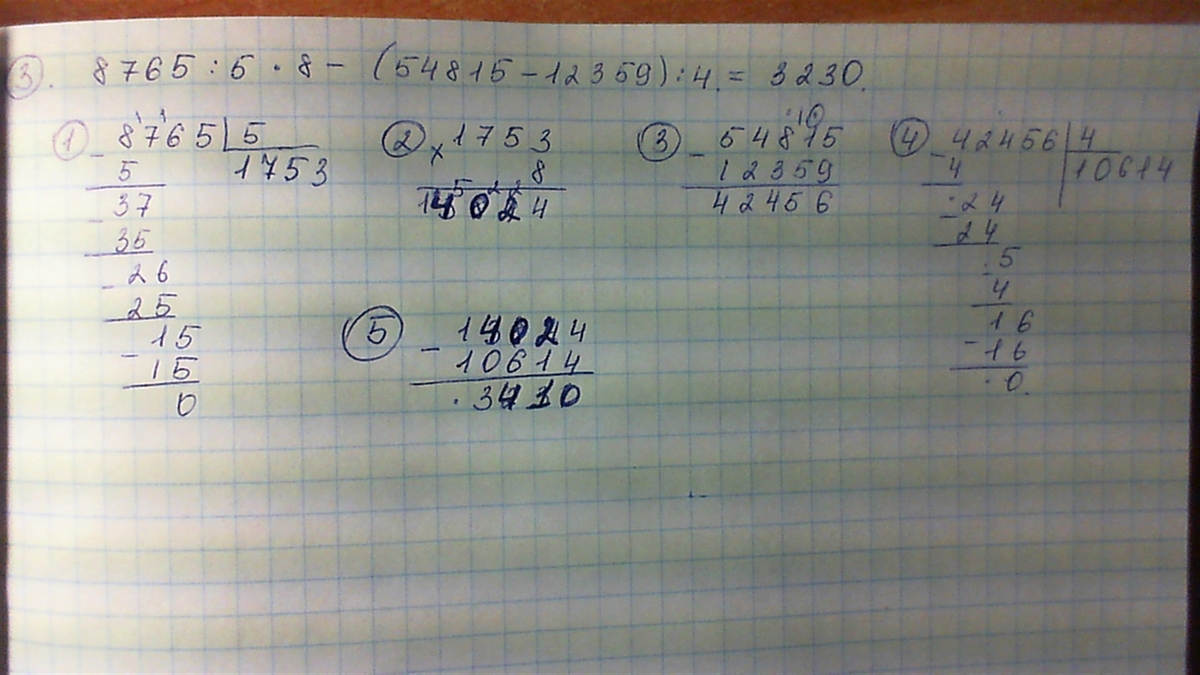 ③. 8765 : 5 · 8 − (54815 − 12359) : 4 = 3230.
① − 8765 | 5
1753
5
− 37
35
− 26
25
− 15
15
0
② × 1753
8
14024
③ − 54815
12359
42456
④ − 42456 | 4
10614
4
− 24
24
5
4
− 16
16
0
⑤ − 14024
10614
3410